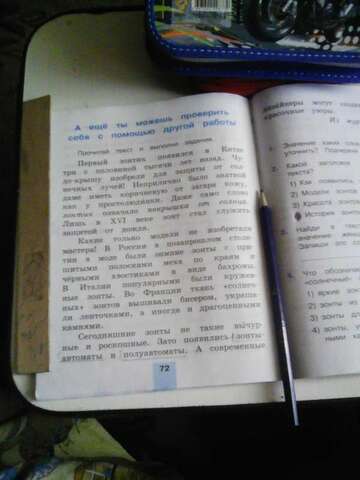 А ещё ты можешь проверить
себя с помощью другой работы
Прочитай текст и выполни задания.
Первый зонтик появился в Китае
три с половиной тысячи лет назад. Чу-
до-крышу изобрели для защиты от сол
нечных лучей! Неприлично было знатной
даме иметь коричневую от загара кожу,
как у простолюдинки. Даже само слово
зонтик означало накрышка от солнца.
Лишь в XVI веке зонт стал служить
защитой от дождя.
Какие только модели не изобретали
мастера! В России в позапрошлом столе-
тии в моде были зимние зонты с
шитыми полосками меха по краям и
чёрными хвостиками в виде бахромы.
В Италии популярными были кружев-
ные зонты. Во Франции ткань «солнеч-
ных» зонтов вышивали бисером, украша-
ли ленточками, а иногда и драгоценными
камнями.
Сегодняшние зонты не такие вычур-
ные и роскошные. Зато появились зонты-
автоматы и полуавтоматы. А современные
72
могут
узоры.
Из
1.
Значение каких слов
уточнить? Подчеркни
2.
Какой заголовок
текста?
1) Как появились
2) Модели зонтов
3) Крыша зонта
История зонт
3.
Найди в тексте
значению
Запиши его
4.
Что обозначает
«солнечные»
1) яркие зонт
2) зонты из
3) зонты дл
4) зонты,
ными ка